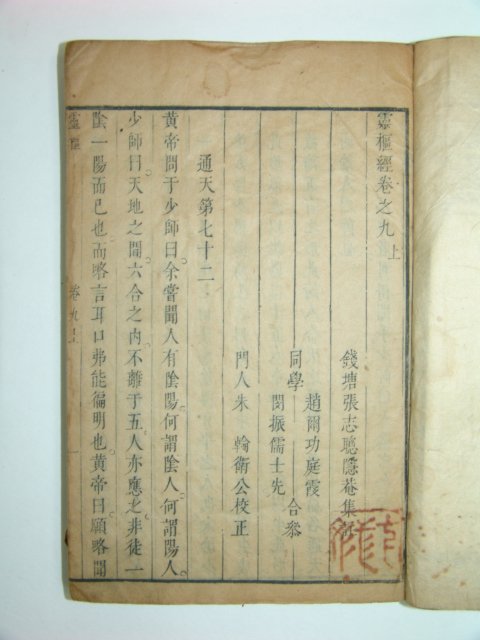 靈樞經卷之九上
錢塘張志聰隱菴集
同學
趙爾功庭霞
閔振儒士先
合參
門人朱輪衛公校正
通天第七十二
黃帝問于少師曰余嘗聞人有陰陽何謂陰人何謂陽人
少師曰天地之間六合之內不離于五人亦應之非徒一
陰一陽而已也而略言耳口弗能徧明也黃帝曰願略聞
靈樞
卷九上